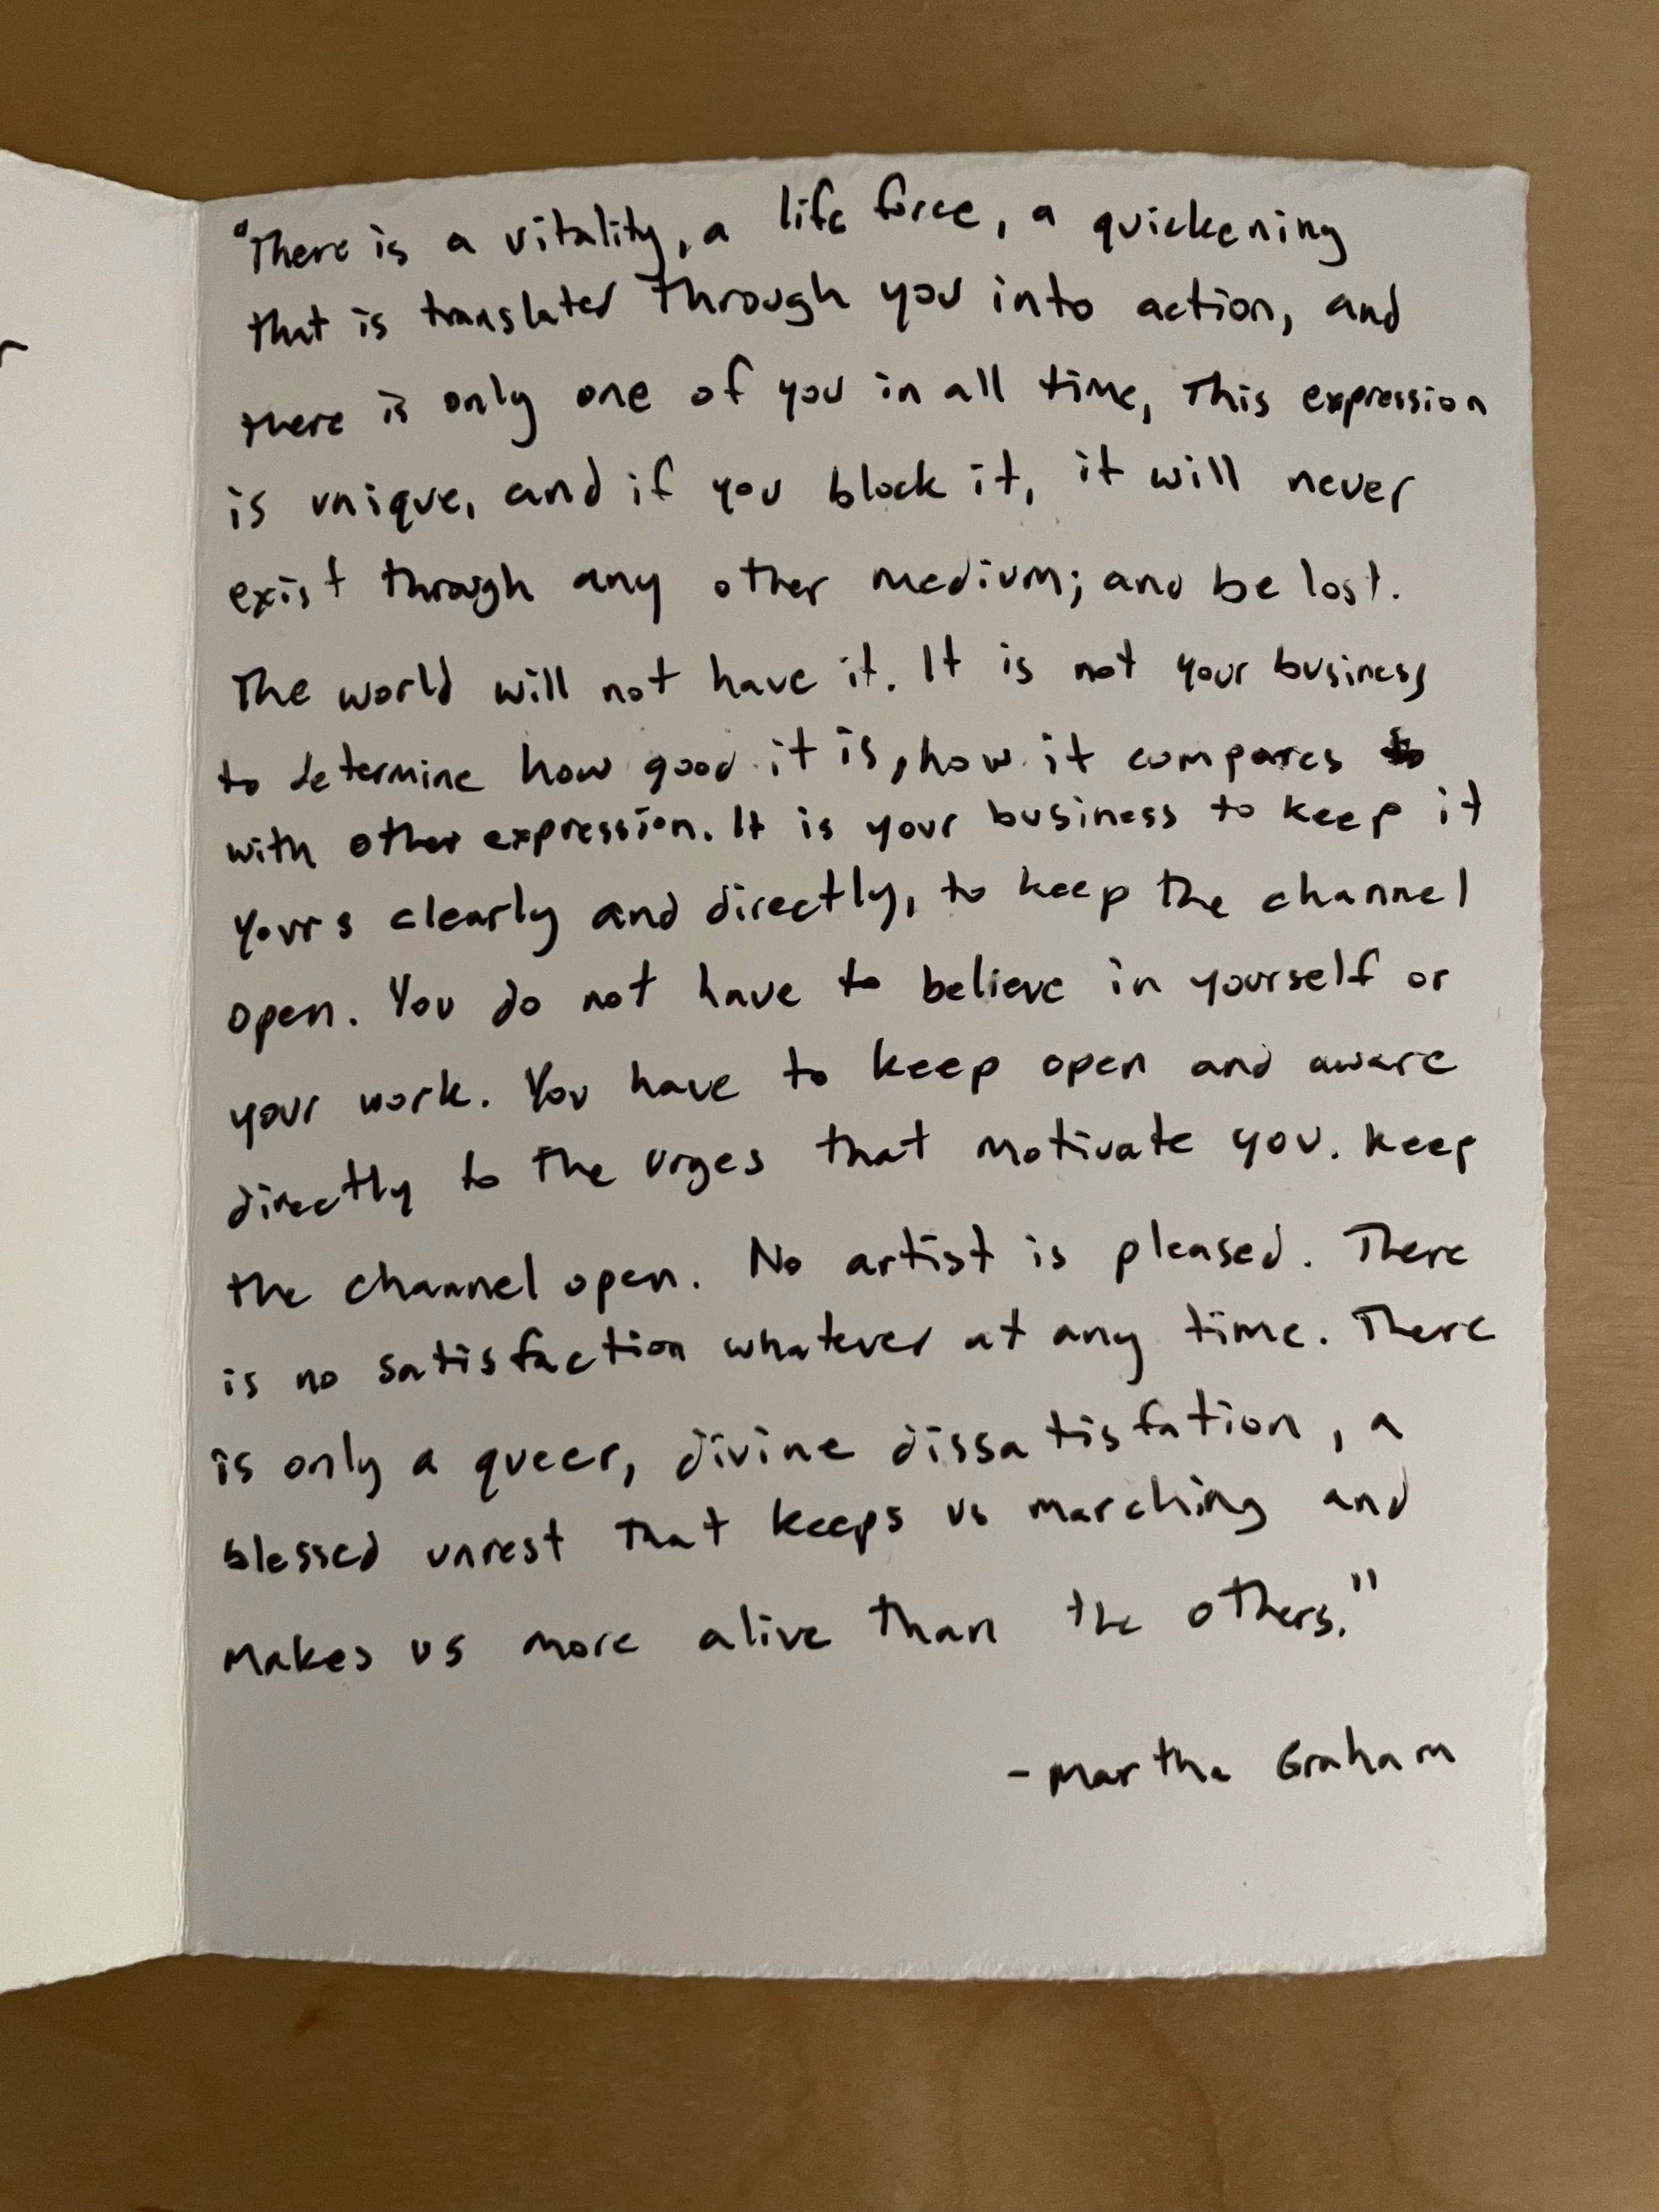 "There is a vitality, a life force, a quickening
that is translated through you into action, and
there is only one of you in all time, This expression
is unique, and if you block it, it will never
exist through any other medium; and be lost.
The world will not have it. It is not your business
to determine how good it is, how it compares
with other expression. It is your business to keep it
yours clearly and directly, to keep the channel
open. You do not have to believe in yourself or
your work. You have to keep open and aware
directly to the urges that motivate you. Keep
the channel open. No artist is pleased. There
is no satisfaction whatever at any time. There
is only a queer, divine dissatisfation, a
blessed unrest that keeps us marching and
makes us more alive than the others."
- Martha Graham